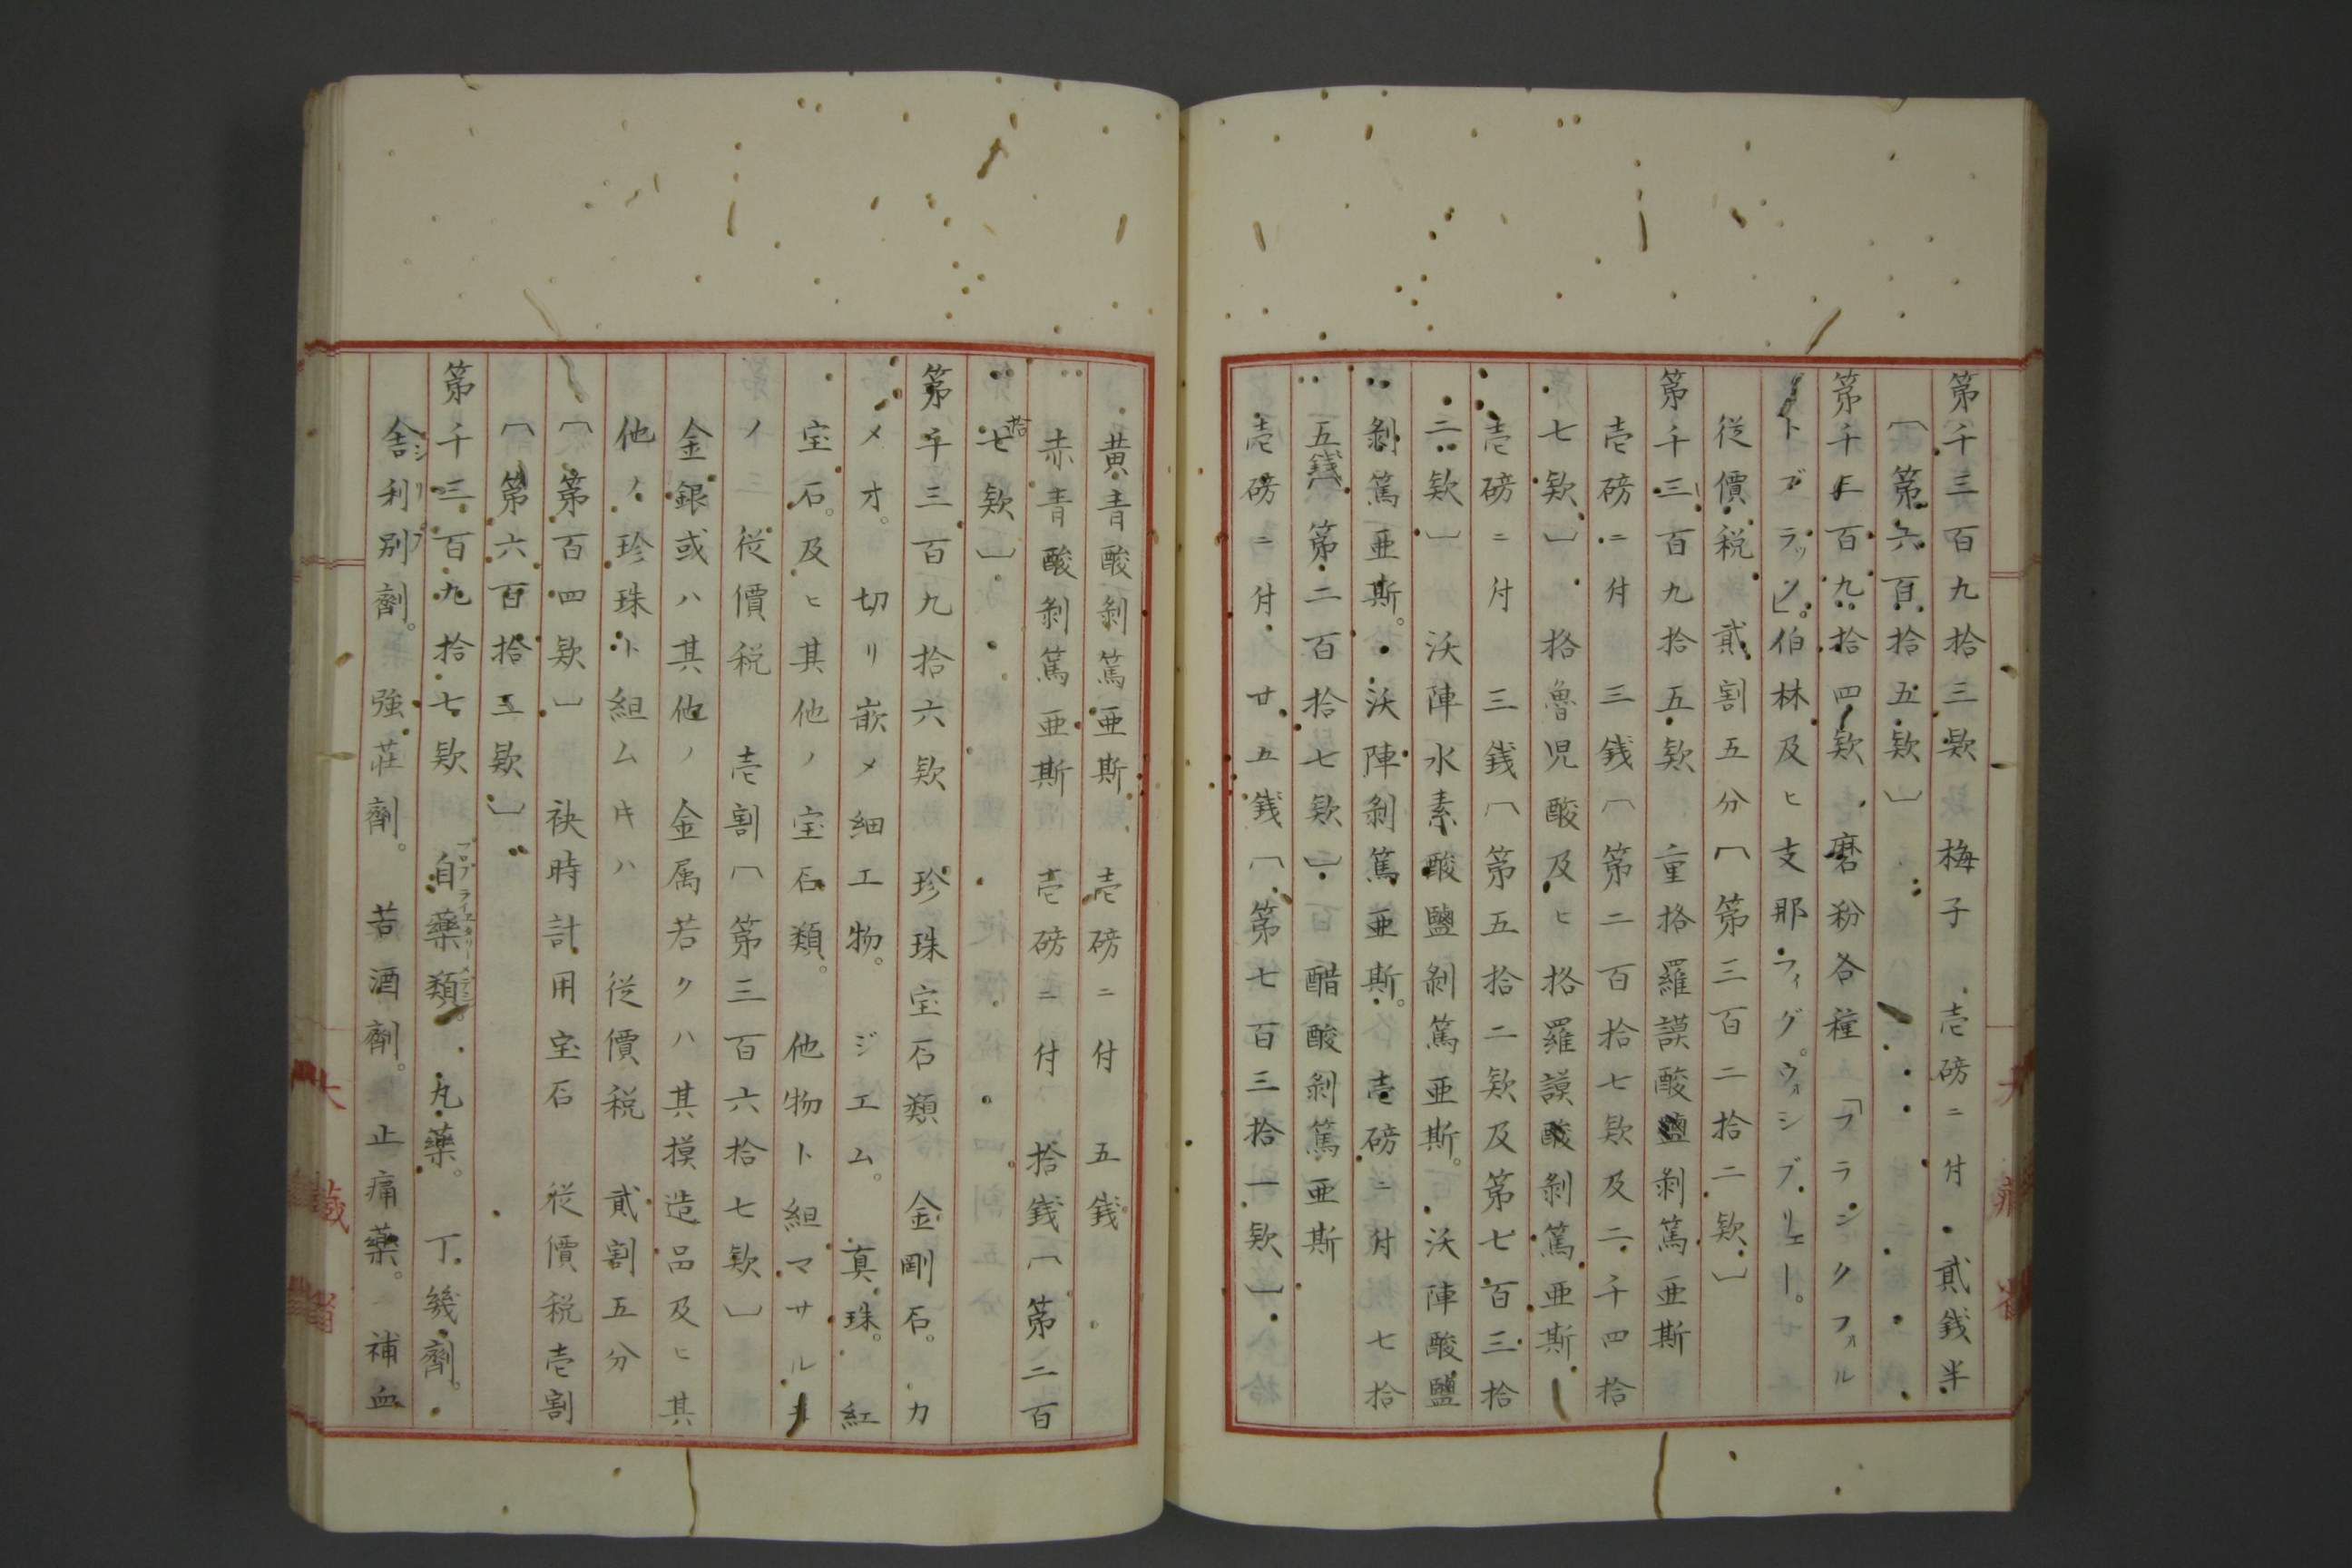 第千三百九拾三欵　梅子　壱磅ニ付　貳銭半
〔第六百拾五欵〕
第千三百九拾四欵　磨粉各種「フランクフォル
トブラッン」。伯林及ヒ支那フィグ。ウォシブリュー。
従價税　貳割五分〔第三百二拾二欵〕
第千三百九拾五欵　重格羅謨酸鹽剥篤亜斯
壱磅ニ付　三銭〔第二百拾七欵及二千四拾
七欵〕　格魯児酸及ヒ格羅謨酸剥篤亜斯
壱磅ニ付　三銭〔第五拾二欵及第七百三拾
二欵〕　沃陣水素酸鹽剥篤亜斯。沃陣酸鹽
剥篤亜斯。沃陣剥篤亜斯。各壱磅ニ付　七拾
五銭〔第二百拾七欵〕　醋酸剥篤亜斯
壱磅ニ付　廿五銭〔第七百三拾一欵〕
黄青酸剥篤亜斯　壱磅ニ付　五銭
赤青酸剥篤亜斯　壱磅ニ付　拾銭〔第二百
拾七欵〕
第千三百九拾六欵　珍珠宝石類　金剛石。カ
メオ。切リ嵌メ細工物。ジエム。真珠。紅
宝石。及ヒ其他ノ宝石類。他物ト組マサルキ
ノ三　従價税　壱割〔第三百六拾七欵〕
金銀或ハ其他ノ金属若クハ其摸造品及ヒ其
他ノ珍珠ト組ムキハ　従價税　貳割五分
〔第百四欵〕　袂時計用宝石　従價税壱割
〔第六百拾五欵〕
第千三百九拾七欵　自藥類。丸藥。丁幾劑。
舎利別劑。強荘劑。苦酒劑。止痛藥。補血